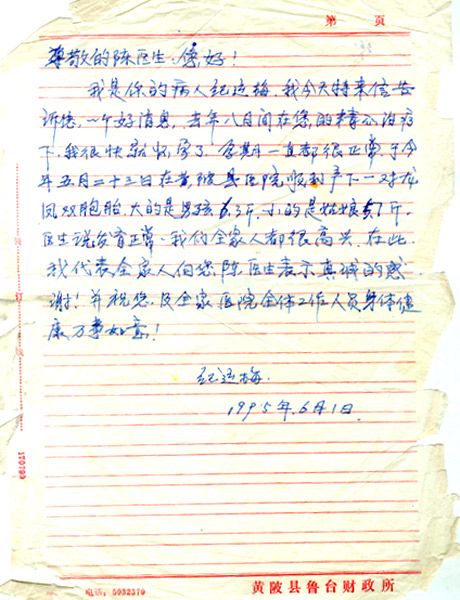 第 页
尊敬的陈医生,您好!
我是你的病人纪运梅,我今天特来信告
诉您,一个好消息,去年八月间在您的精心治疗
下,我很快就怀孕了,孕期一直都很正常,于今
年五月二十三日在黄陂县医院顺利产下一对龙
凤双胞胎,大的是男孩6.3斤,小的是姑娘5.7斤,
医生说发育正常,我们全家人都很高兴,在此,
我代表全家人向您陈医生表示真诚的感
谢!并祝您及全家 医院全体工作人员身体健
康万事如意!
纪运梅.
1995年6月1日
装订线
170799
电话:5932379 黄陂县鲁台财政所